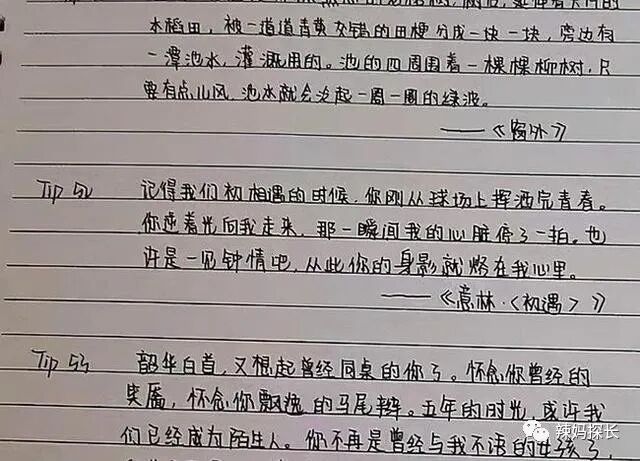 水稻田，被一道道青黄交错的田梗分成一块一块，旁边有
一潭池水，灌溉用的。池的四周围着一棵棵柳树，只
要有点儿风，池水就会泛起一周一圈的绿波。
——《窗外》
Tip 52 记得我们初相遇的时候，你刚从球场上挥洒完青春。
你逆着光向我走来，那一瞬间我的心脏停了一拍。也
许是一见钟情吧，从此你的身影就烙在我心里。
——《意林·<初遇>》
Tip 53 韶华白首，又想起曾经同桌的你了。怀念你曾经的
笑靥，怀念你飘逸的马尾辫。五年的时光，或许我
们已经成为陌生人。你不再是曾经与我不语的女孩了，
辣妈探长